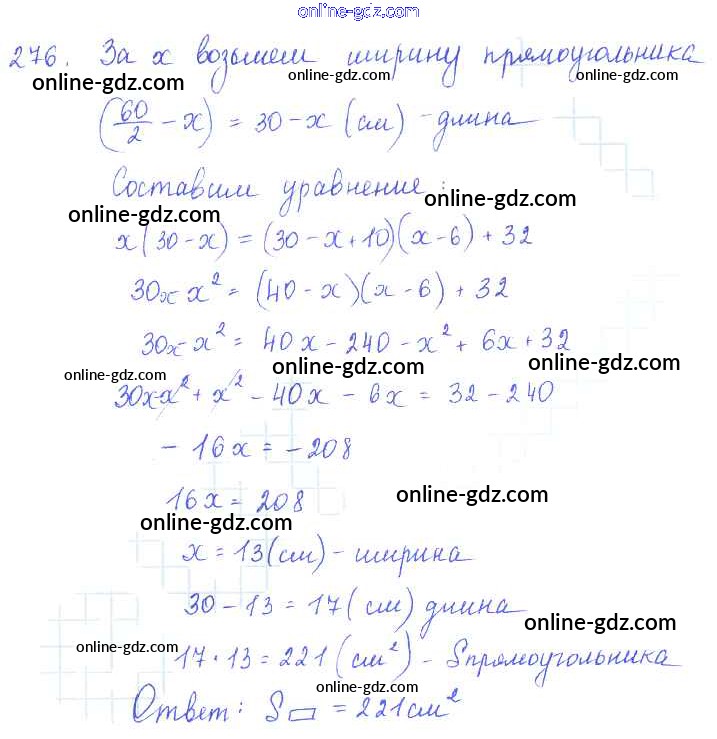 online-gdz.com
276. За x возьмем ширину прямоугольника
online-gdz.com online-gdz.com online-gdz.com
(60/2 - x) = 30 - x (см) - длина
Составим уравнение:
online-gdz.com online-gdz.com
x(30 - x) = (30 - x + 10)(x - 6) + 32
30x - x² = (40 - x)(x - 6) + 32
30x - x² = 40x - 240 - x² + 6x + 32
online-gdz.com online-gdz.com online-gdz.com
30x - x² + x² - 40x - 6x = 32 - 240
- 16x = - 208
16x = 208
online-gdz.com
online-gdz.com
x = 13 (см) - ширина
30 - 13 = 17 (см) длина
online-gdz.com
online-gdz.com
17 · 13 = 221 (см²) - Sпрямоугольника
online-gdz.com
Ответ: S▭ = 221 см²